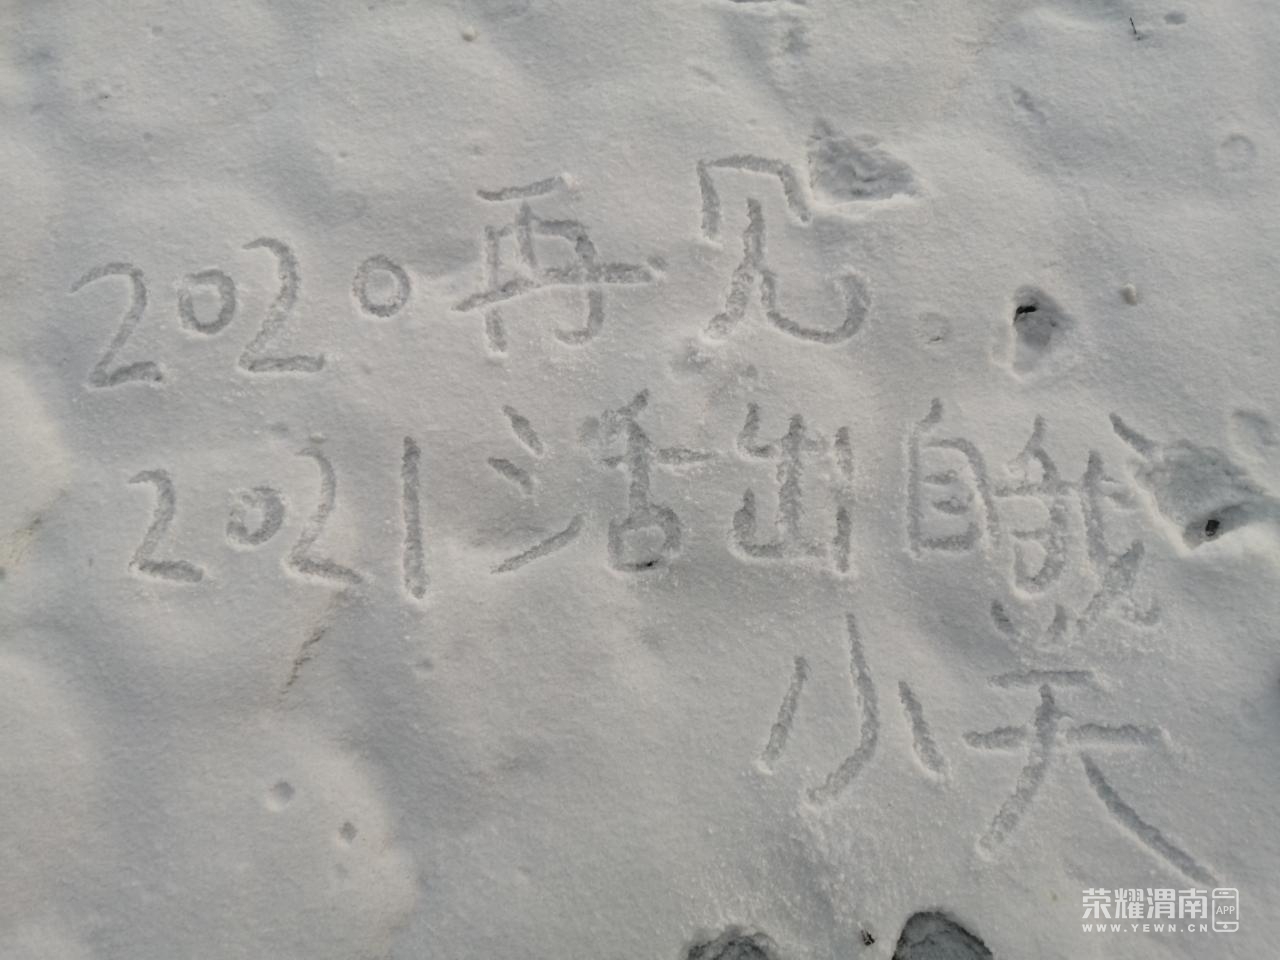 2020再见
2021活出自我
小天
荣耀渭南 APP
WWW.YEWN.CN